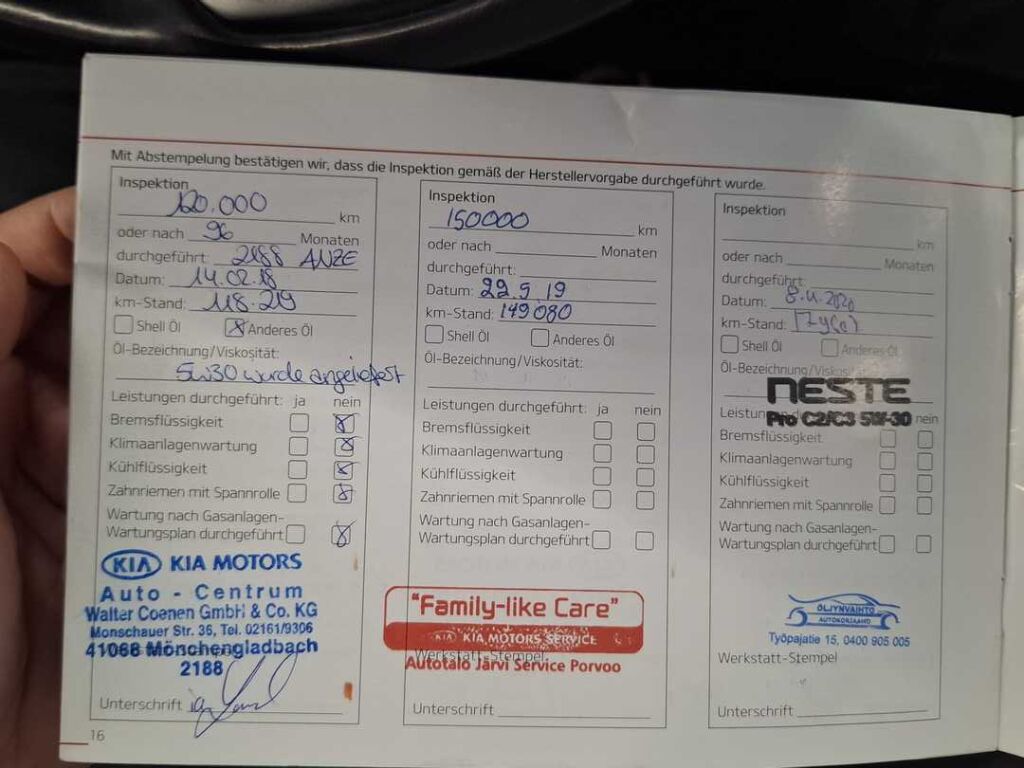 Mit Abstempelung bestätigen wir, dass die Inspektion gemäß der Herstellervorgabe durchgeführt wurde.
Inspektion
120.000 km
oder nach 96 Monaten
durchgeführt: 2188 ANZE
Datum: 14.02.18
km-Stand: 118.219
Shell Öl Anderes Öl
Öl-Bezeichnung/Viskosität:
5W30 wurde angeliefert
Leistungen durchgeführt: ja nein
Bremsflüssigkeit
Klimaanlagenwartung
Kühlflüssigkeit
Zahnriemen mit Spannrolle
Wartung nach Gasanlagen-
Wartungsplan durchgeführt
KIA KIA MOTORS
Auto - Centrum
Walter Coenen GmbH & Co. KG
Monschauer Str. 35, Tel. 02161/9306
41068 Mönchengladbach
2188
Unterschrift
16
Inspektion
150000 km
oder nach Monaten
durchgeführt:
Datum: 22.9.19
km-Stand: 149080
Shell Öl Anderes Öl
Öl-Bezeichnung/Viskosität:
Leistungen durchgeführt: ja nein
Bremsflüssigkeit
Klimaanlagenwartung
Kühlflüssigkeit
Zahnriemen mit Spannrolle
Wartung nach Gasanlagen-
Wartungsplan durchgeführt
"Family-like Care"
KIA KIA MOTORS SERVICE
Werkstatt-Stempel
Autotalo Järvi Service Porvoo
Unterschrift
Inspektion
km
oder nach Monaten
durchgeführt:
Datum: 2020
km-Stand:
Shell Öl Anderes Öl
Öl-Bezeichnung/Viskosität
NESTE
Pro C2/C3 5W-30
nein
Bremsflüssigkeit
Klimaanlagenwartung
Kühlflüssigkeit
Zahnriemen mit Spannrolle
Wartung nach Gasanlagen-
Wartungsplan durchgeführt
ÖLJYNVAIHTO
AUTOKORJAAMO
Työpajatie 15, 0400 905 005
Werkstatt-Stempel
Unterschrift